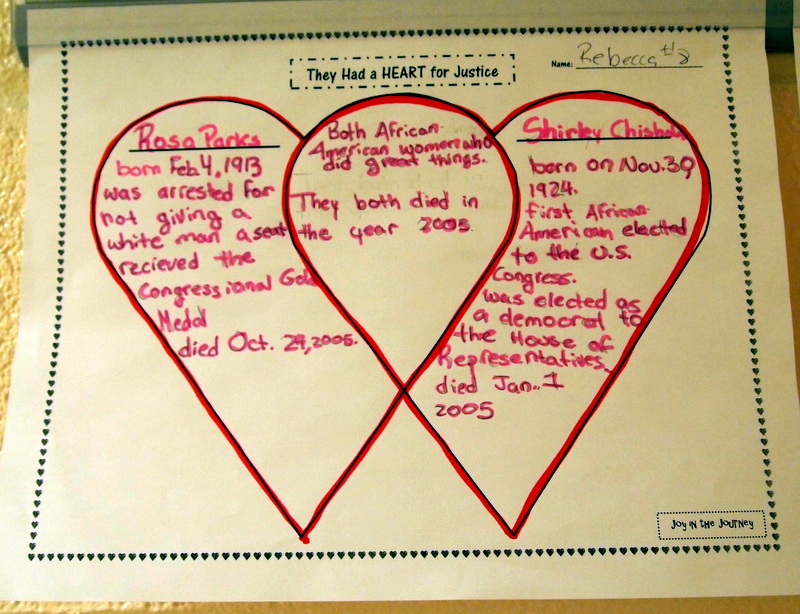 They Had a HEART for Justice
Name: Rebecca #2
Rosa Parks
born Feb. 4, 1913
was arrested for
not giving a
white man a seat
recieved the
Congressional Gold
Medal
died Oct. 24, 2005.
Both African
American women who
did great things.
They both died in
the year 2005.
Shirley Chisholm
born on Nov. 30
1924.
first African
American elected
to the U.S.
Congress.
was elected as
a democrat to
the House of
Representatives.
died Jan. 1
2005
Joy in the Journey